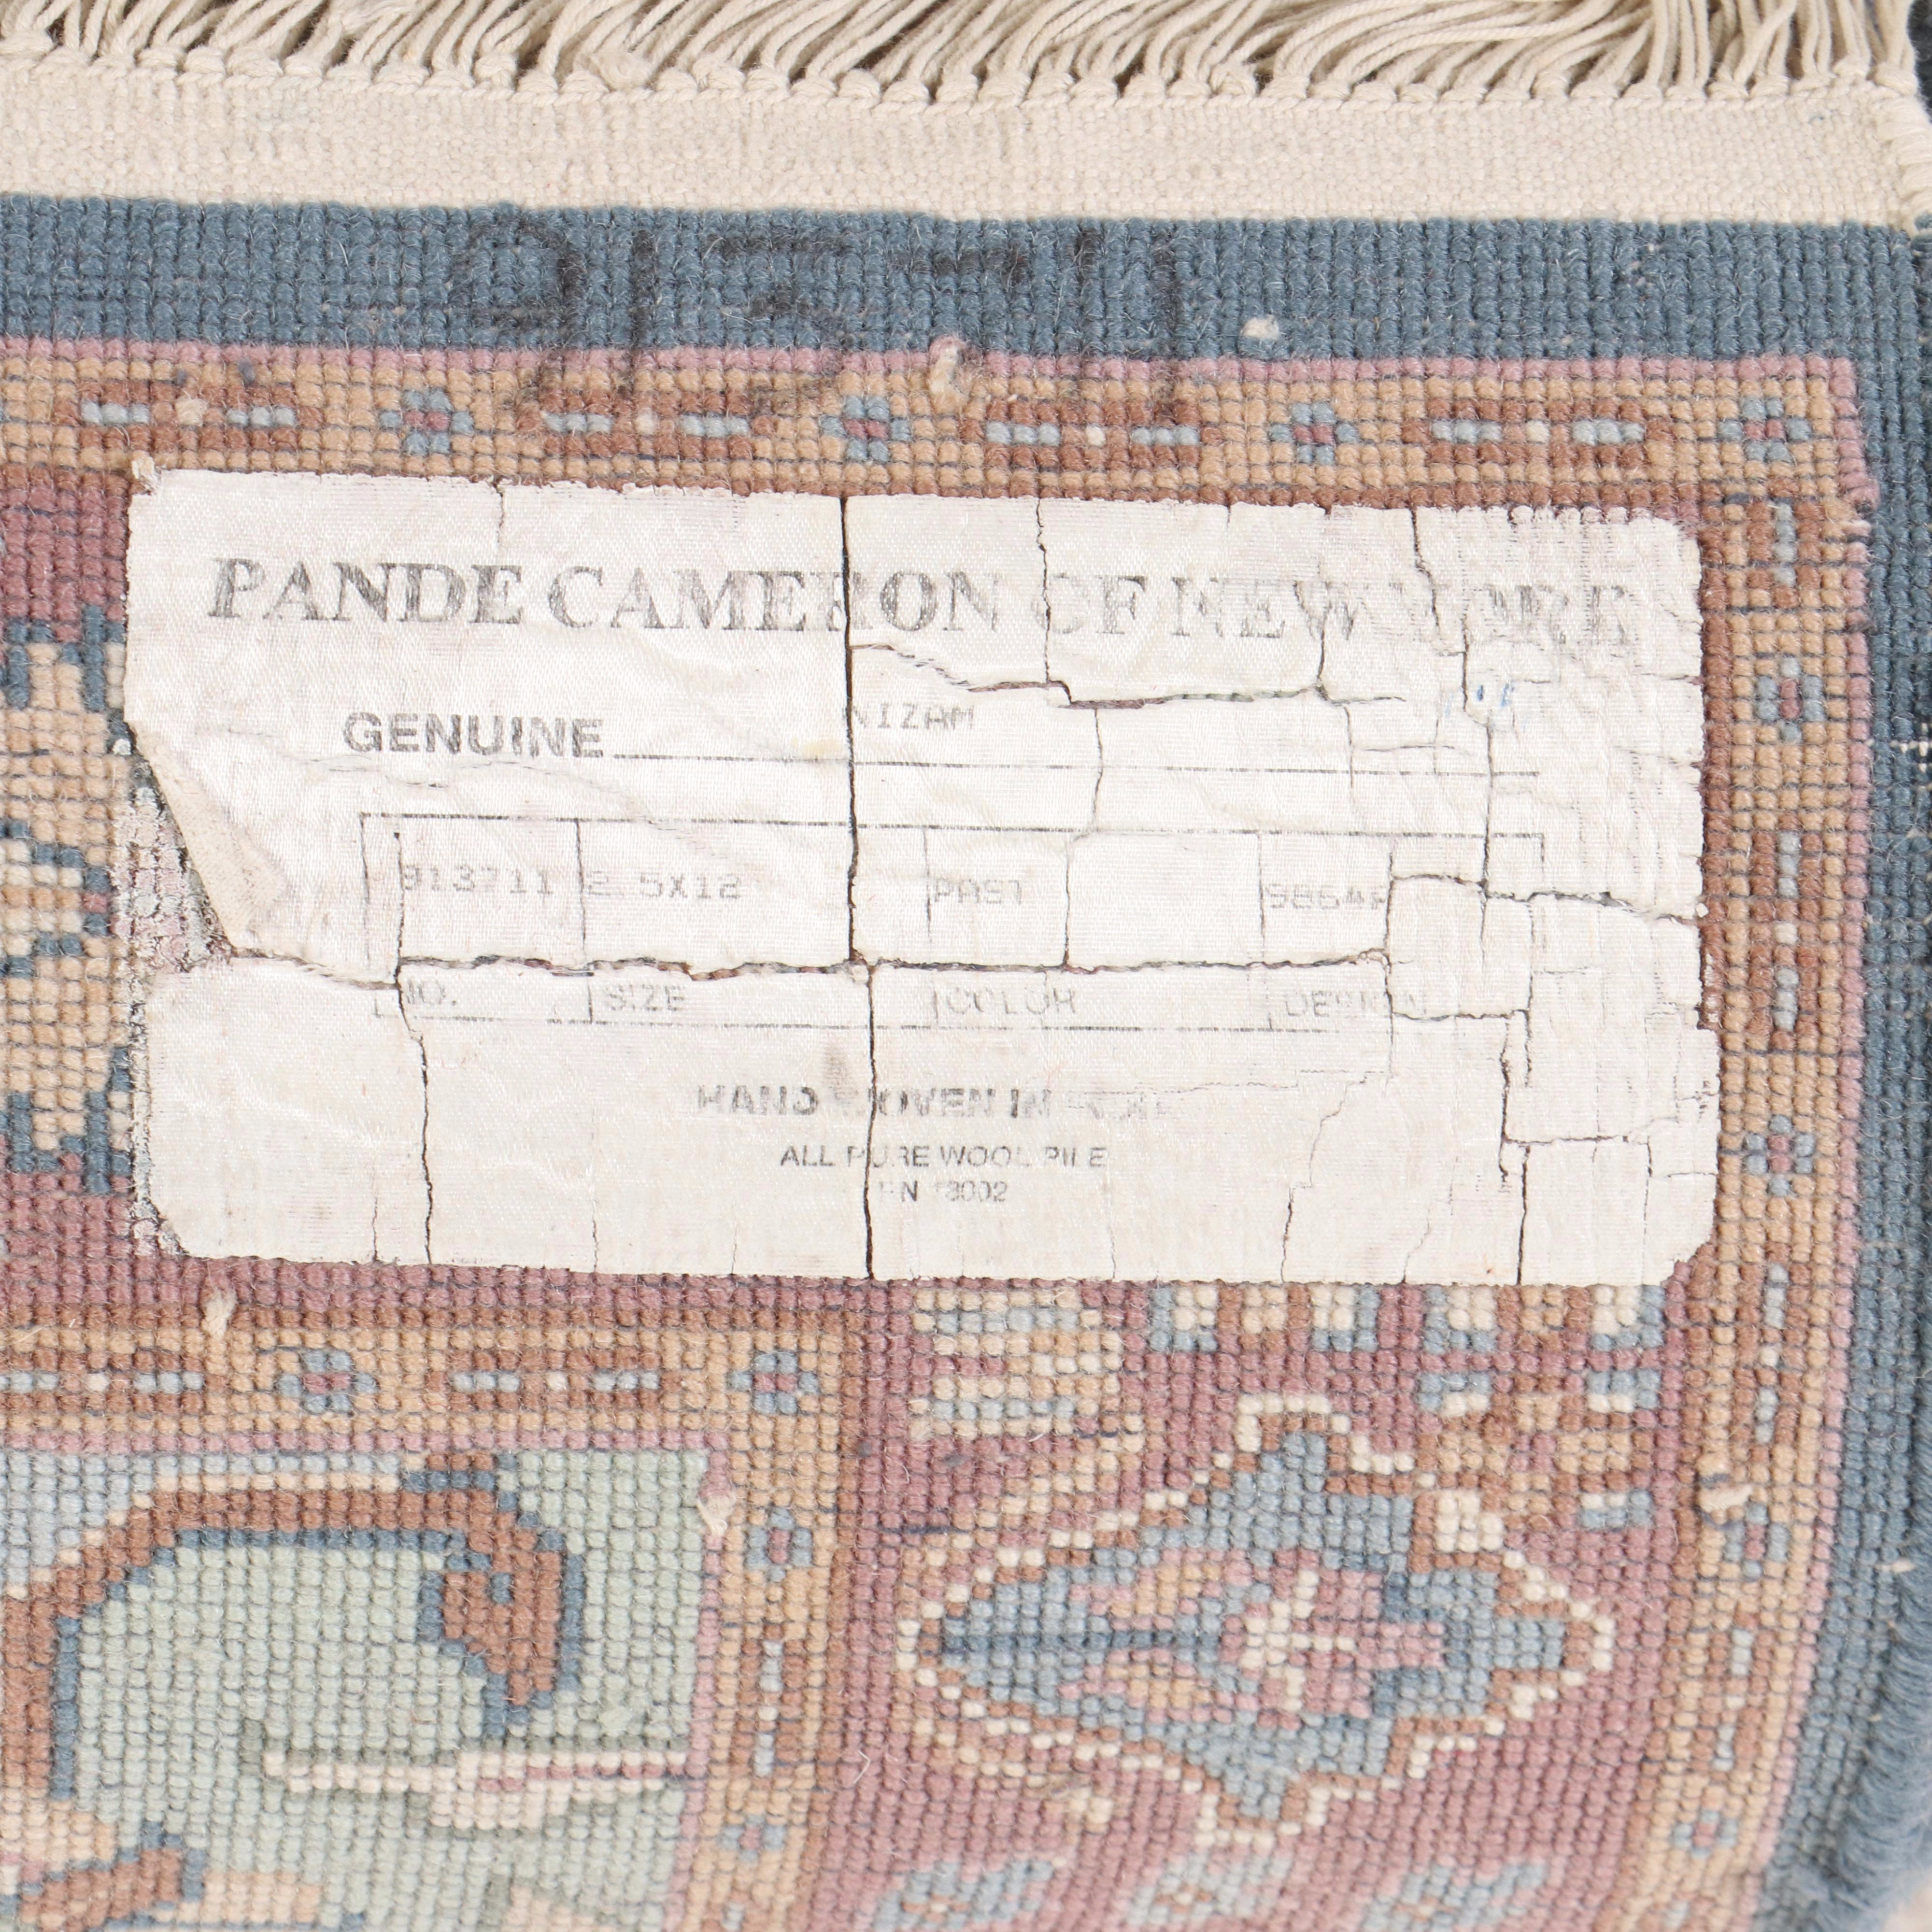 913711
PANDE CAMERON OF NEW YORK
GENUINE NIZAM
913711 2.5X12 PAST
NO. SIZE COLOR DESIGN
HAND WOVEN IN
ALL PURE WOOL PILE